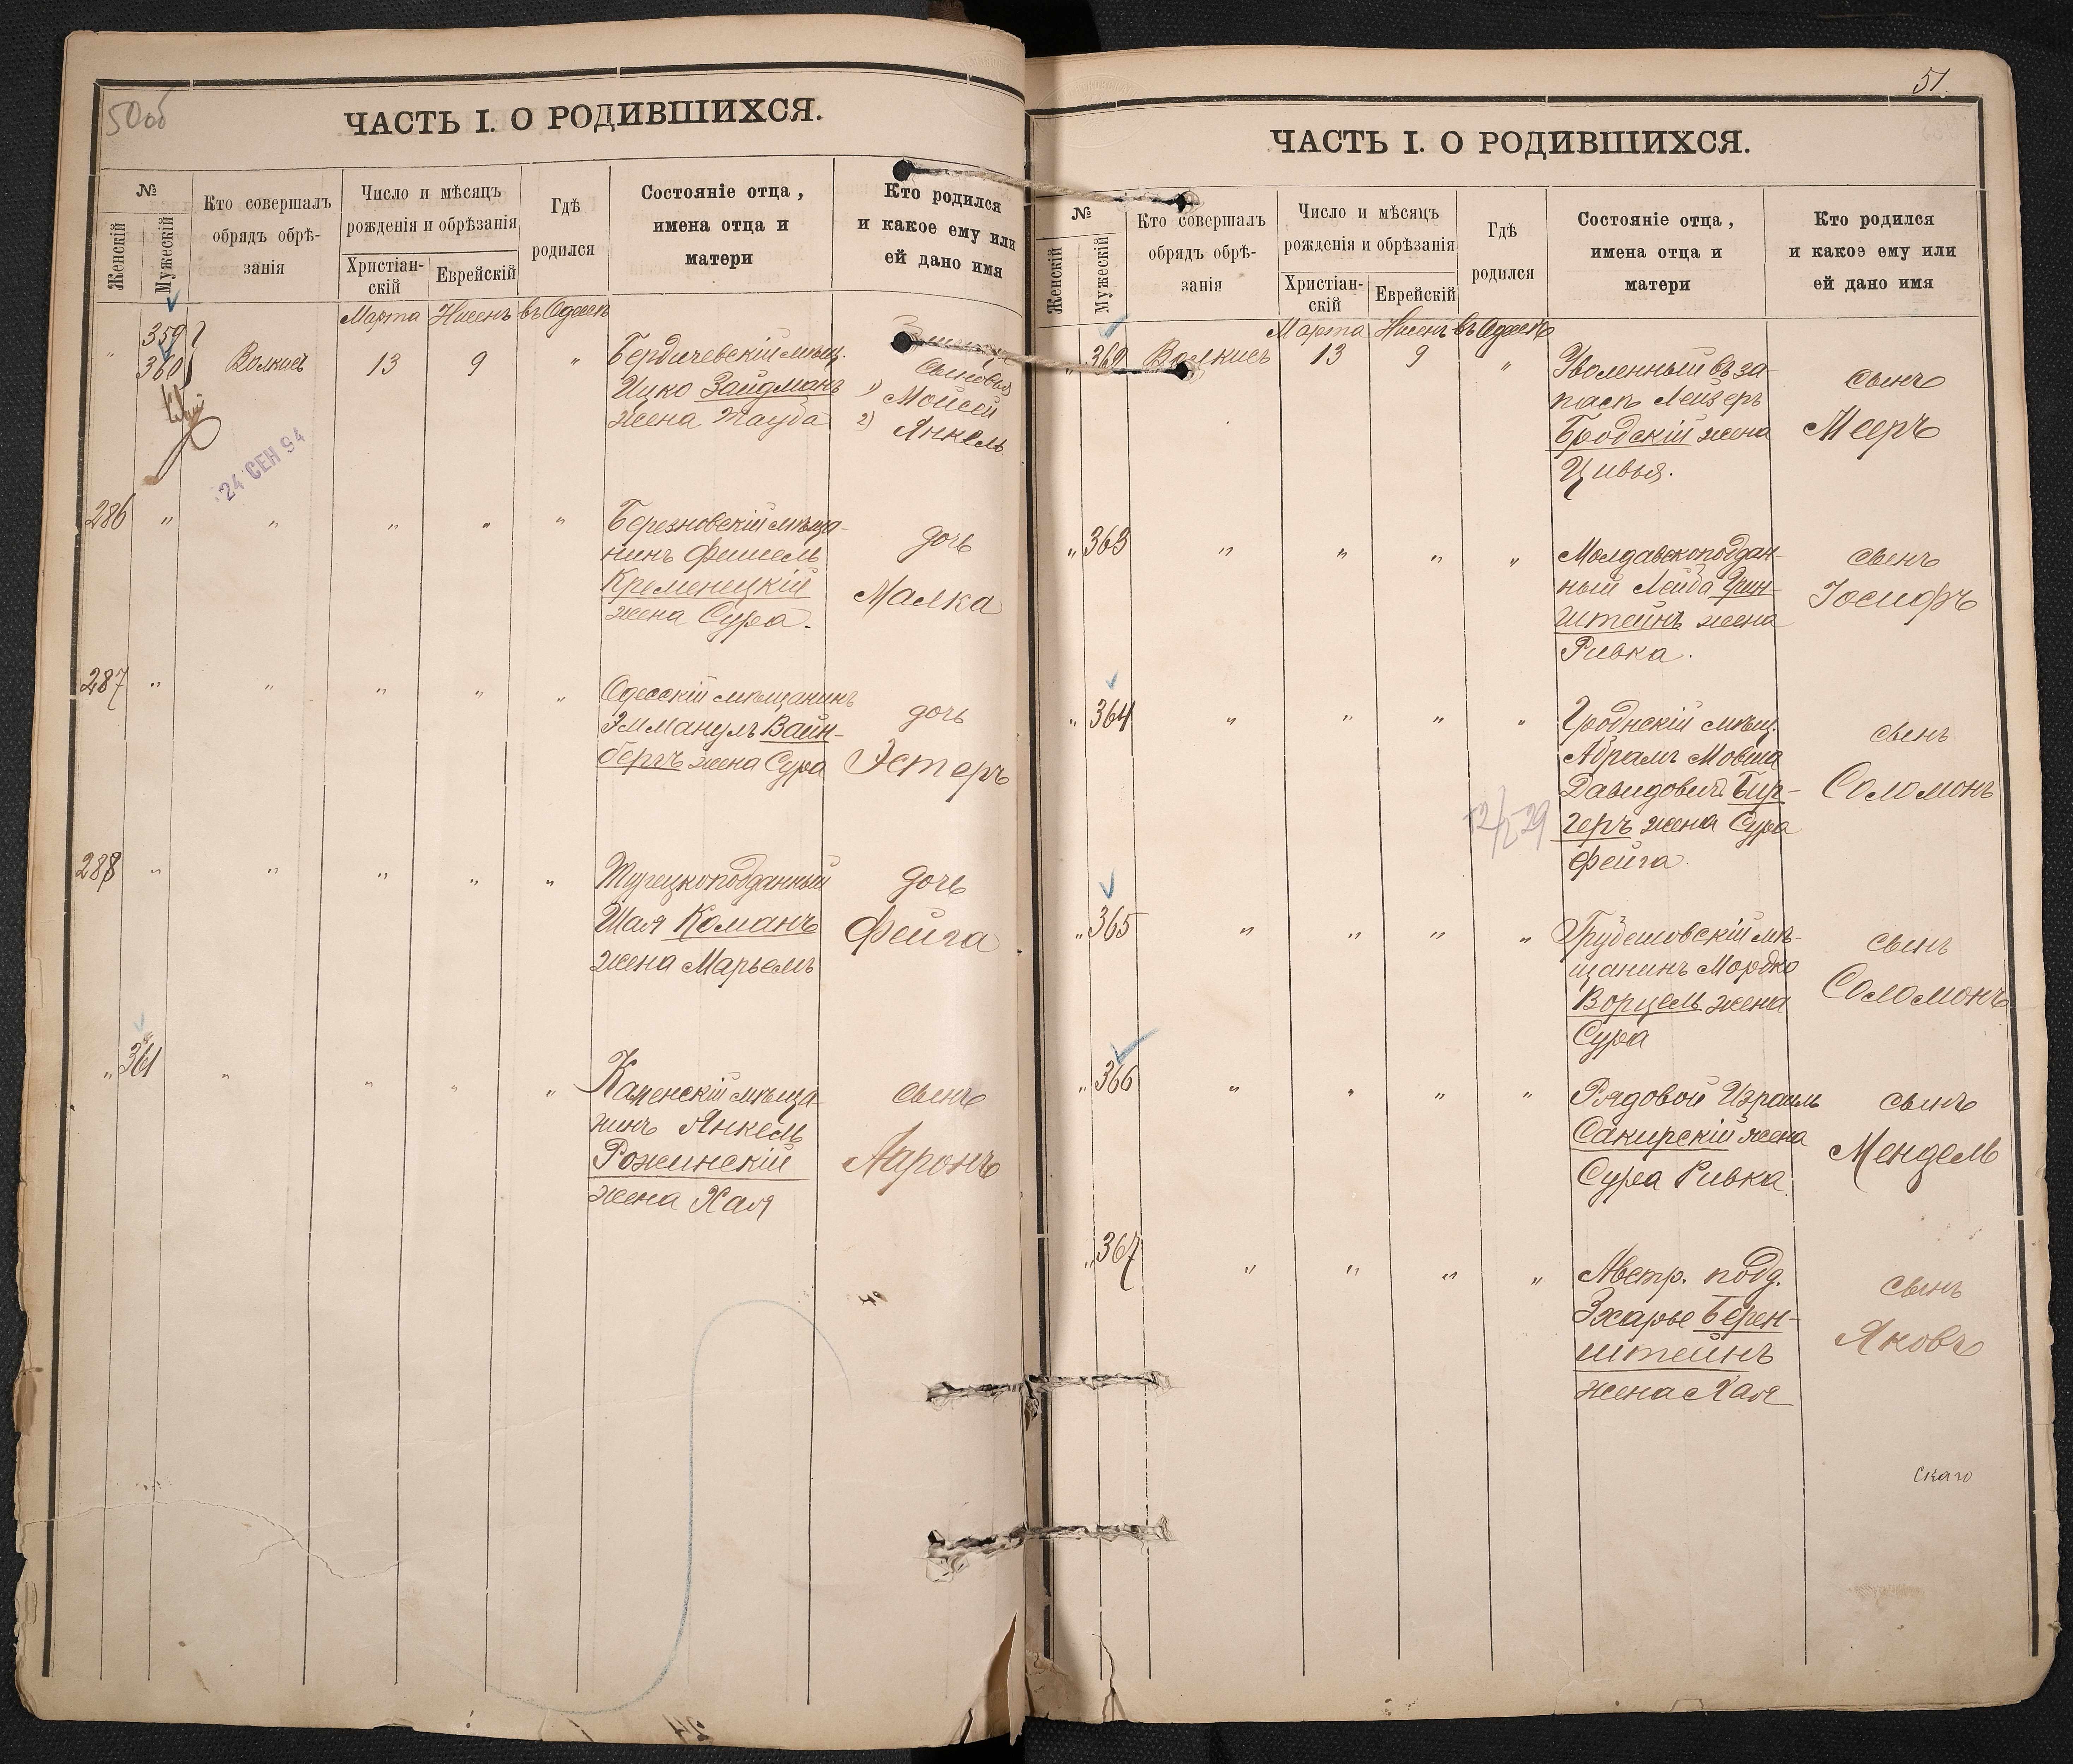 50об
ЧАСТЬ I. О РОДИВШИХСЯ.
№
Женскій
Мужескій
Кто совершалъ
обрядъ обрѣ-
занія
Число и мѣсяцъ
рожденія и обрѣзанія
Христіан-
скій
Еврейскій
Гдѣ
родился
Состояніе отца,
имена отца и
матери
Кто родился
и какое ему или
ей дано имя
Марта Нисенъ въ Одессѣ
" 359
360 Волкисъ 13 9 "
Бердичевскій мѣщ.
Ицко Зайдманъ
жена Тауба
Сыновья
1) Мойсей
2) Янкель
24 СЕН 94
286 " " " " "
Березновскій мѣща-
нинъ Фишель
Кременецкій
жена Сура.
дочь
Малка
287 " " " " "
Одесскій мѣщанинъ
Эммануль Вайн-
бергъ жена Сура
дочь
Эстеръ
288 " " " " "
Турецкоподданный
Шая Команъ
жена Марьемъ
дочь
Фейга
" 361 " " " "
Каменскій мѣща-
нинъ Янкель
Рожинскій
жена Хая
сынъ
Аронъ
51.
ЧАСТЬ I. О РОДИВШИХСЯ.
№
Женскій
Мужескій
Кто совершалъ
обрядъ обрѣ-
занія
Число и мѣсяцъ
рожденія и обрѣзанія
Христіан-
скій
Еврейскій
Гдѣ
родился
Состояніе отца,
имена отца и
матери
Кто родился
и какое ему или
ей дано имя
Марта Нисенъ въ Одессѣ
" 362 Волкисъ 13 9 "
Уволенный въ за-
пасъ Лейзеръ
Бродскій жена
Цивья.
сынъ
Мееръ
" 363 " " " "
Молдавскоподдан-
ный Лейба Грин-
штейнъ жена
Ривка.
сынъ
Іосифъ
" 364 " " " "
Гроднскій мѣщ.
Абрамъ Мовша
Давидовичъ Бир-
геръ жена Сура
Фейга.
сынъ
Соломонъ
" 365 " " " "
Грубешовскій мѣ-
щанинъ Мордко
Ворцель жена
Сура
сынъ
Соломонъ
" 366 " " " "
Рядовой Израиль
Сакирскій жена
Сура Ривка.
сынъ
Мендель
" 367 " " " "
Австр. подд.
Зхарье Берен-
штейнъ
жена Хая
сынъ
Яковъ
скаго